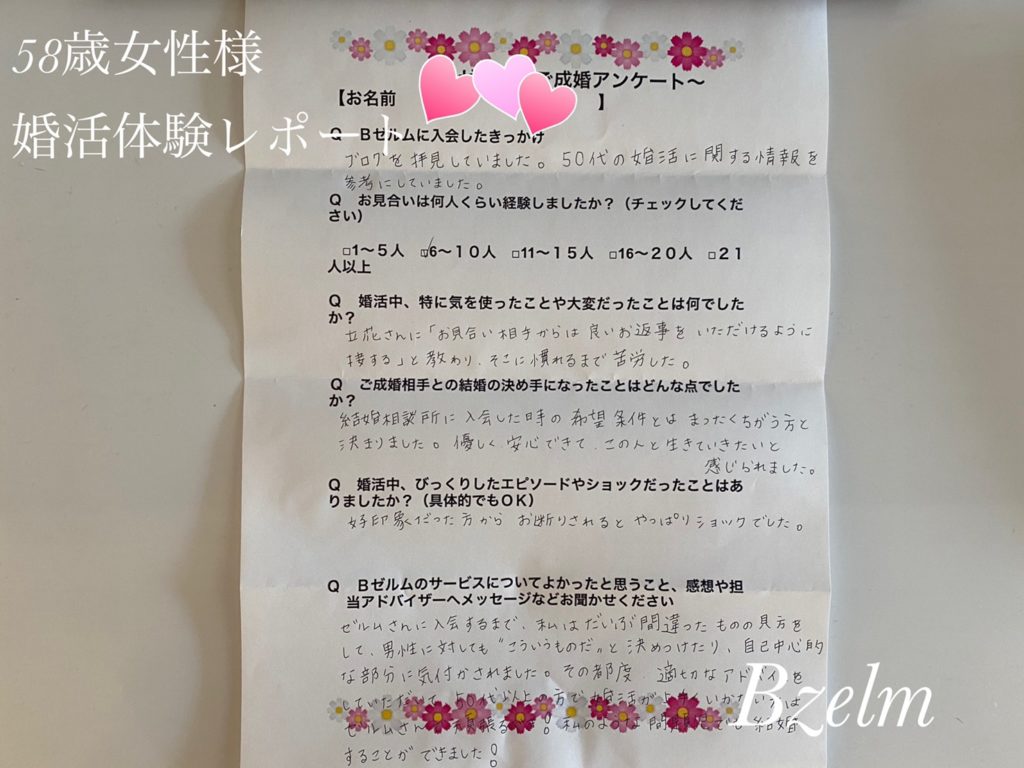 58歳女性様
婚活体験レポート
ご成婚アンケート〜
【お名前 】
Q Bゼルムに入会したきっかけ
ブログを拝見していました。50代の婚活に関する情報を
参考にしていました。
Q お見合いは何人くらい経験しましたか？（チェックしてくだ
さい）
□1〜５人 ☑6〜１０人 □11〜１５人 □16〜２０人 □２１
人以上
Q 婚活中、特に気を使ったことや大変だったことは何でした
か？
立花さんに「お見合い相手からは良いお返事をいただけるように
接する」と教わり、そこに慣れるまで苦労した。
Q ご成婚相手との結婚の決め手になったことはどんな点でした
か？
結婚相談所に入会した時の希望条件とはまったくちがう方と
決まりました。優しく、安心できて、この人と生きていきたいと
感じられました。
Q 婚活中、びっくりしたエピソードやショックだったことはあ
りましたか？（具体的でもＯＫ）
好印象だった方からお断りされるとやっぱりショックでした。
Q Bゼルムのサービスについてよかったと思うこと、感想や担
当アドバイザーへメッセージなどお聞かせください
ゼルムさんに入会するまで、私はだいぶ間違ったものの見方を
して、男性に対しても"こういうものだ"と決めつけたり、自己中心的
な部分に気付かされました。その都度、適切なアドバイスを
していただいて、50代以上の方で婚活が
ゼルムさん 私のような 結婚
することができました！
Bzelm